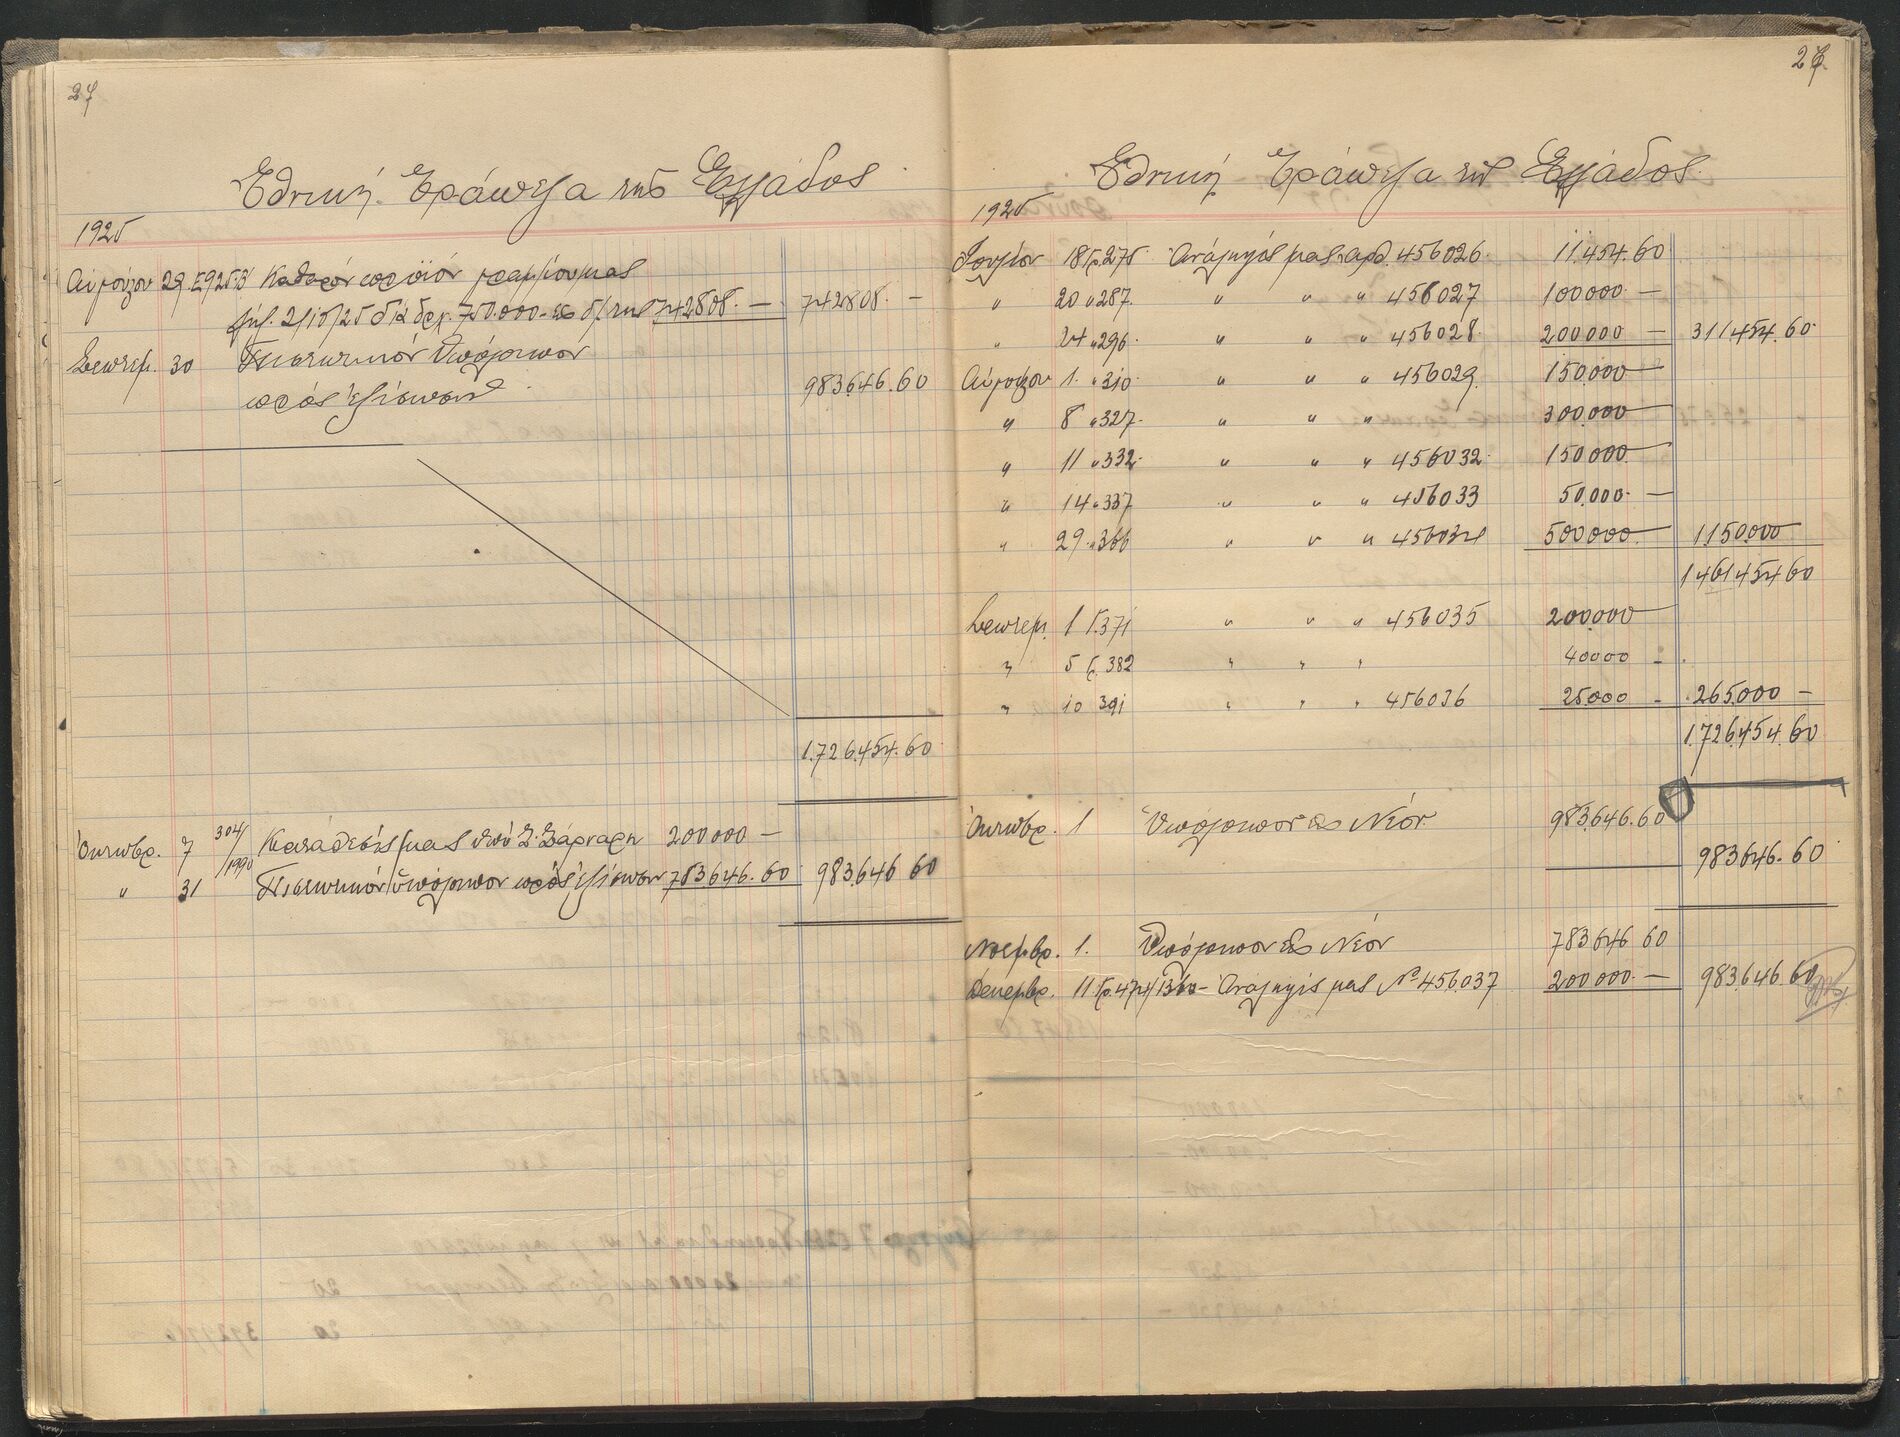 27
Ἐθνική Τράπεζα τῆς Ἑλλάδος
1925
Αὐγούστου 29 Καθαρόν προϊόν γραμμίου μας
2/10/25 διά δρχ. 750.000 742808.— 742808.—
Σεπτεμ. 30 Πιστωτικόν Ὑπόλοιπον
πρός ἐξίσωσιν 983.646.60
1.726.454.60
Ὀκτωβρ. 7 304/1990 Κατάθεσίς μας ὑπό 200000—
" 31 Πιστωτικόν ὑπόλοιπον πρός ἐξίσωσιν 783646.60 983.646 60
27
Ἐθνική Τράπεζα τῆς Ἑλλάδος
1925
Ἰουλίου 18 Γρ. 275 Ἀνάληψίς μας ἀρθ. 456026 11.454.60
" 20 " 287 " " " 456027 100000—
" 24 " 296 " " " 456028 200000— 311454.60
Αὐγούστου 1 " 310 " " " 456029 150.000—
" 8 " 327 " " " 300.000—
" 11 " 332 " " " 456032 150.000—
" 14 " 337 " " " 456033 50.000.—
" 29 " 366 " " " 456034 500.000— 1150.000—
1461454 60
Σεπτεμ. 1 Γ. 371 " " " 456035 200.000—
" 5 Γρ. 382 " " " 40000—
" 10 391 " " " 456036 25.000— 265.000—
1.726.454.60
Ὀκτωβρ. 1 Ὑπόλοιπον ἐκ Νέου 983.646.60
983646.60
Νοεμβρ. 1. Ὑπόλοιπον ἐκ Νέου 783646 60
Δεκεμβρ. 11 Ἀνάληψις μας Νο 456037 200000.— 983.646.60